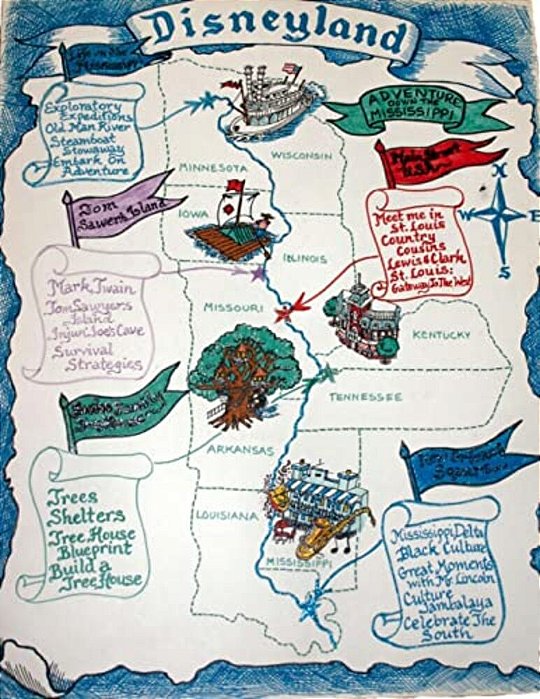 Disneyland
ADVENTURE
DOWN THE
MISSISSIPPI
Exploratory
Expeditions
Old Man River
Steamboat
Stowaway
Embark On
Adventure
MINNESOTA
WISCONSIN
Main Street
U.S.A.
N
W
E
S
Tom
Sawyers Island
IOWA
ILLINOIS
Meet me in
St. Louis
Country
Cousins
Lewis & Clark
St. Louis:
Gateway To The West
Mark Twain
Tom Sawyers
Island
Injun Joe's Cave
Survival
Strategies
MISSOURI
KENTUCKY
TENNESSEE
Swiss Family
ARKANSAS
Trees
Shelters
Tree House
Blueprint
Build a
Tree House
LOUISIANA
MISSISSIPPI
New Orleans
Square
Mississippi Delta
Black Culture
Great Moments
with Mr. Lincoln
Culture
Jambalaya
Celebrate The
South